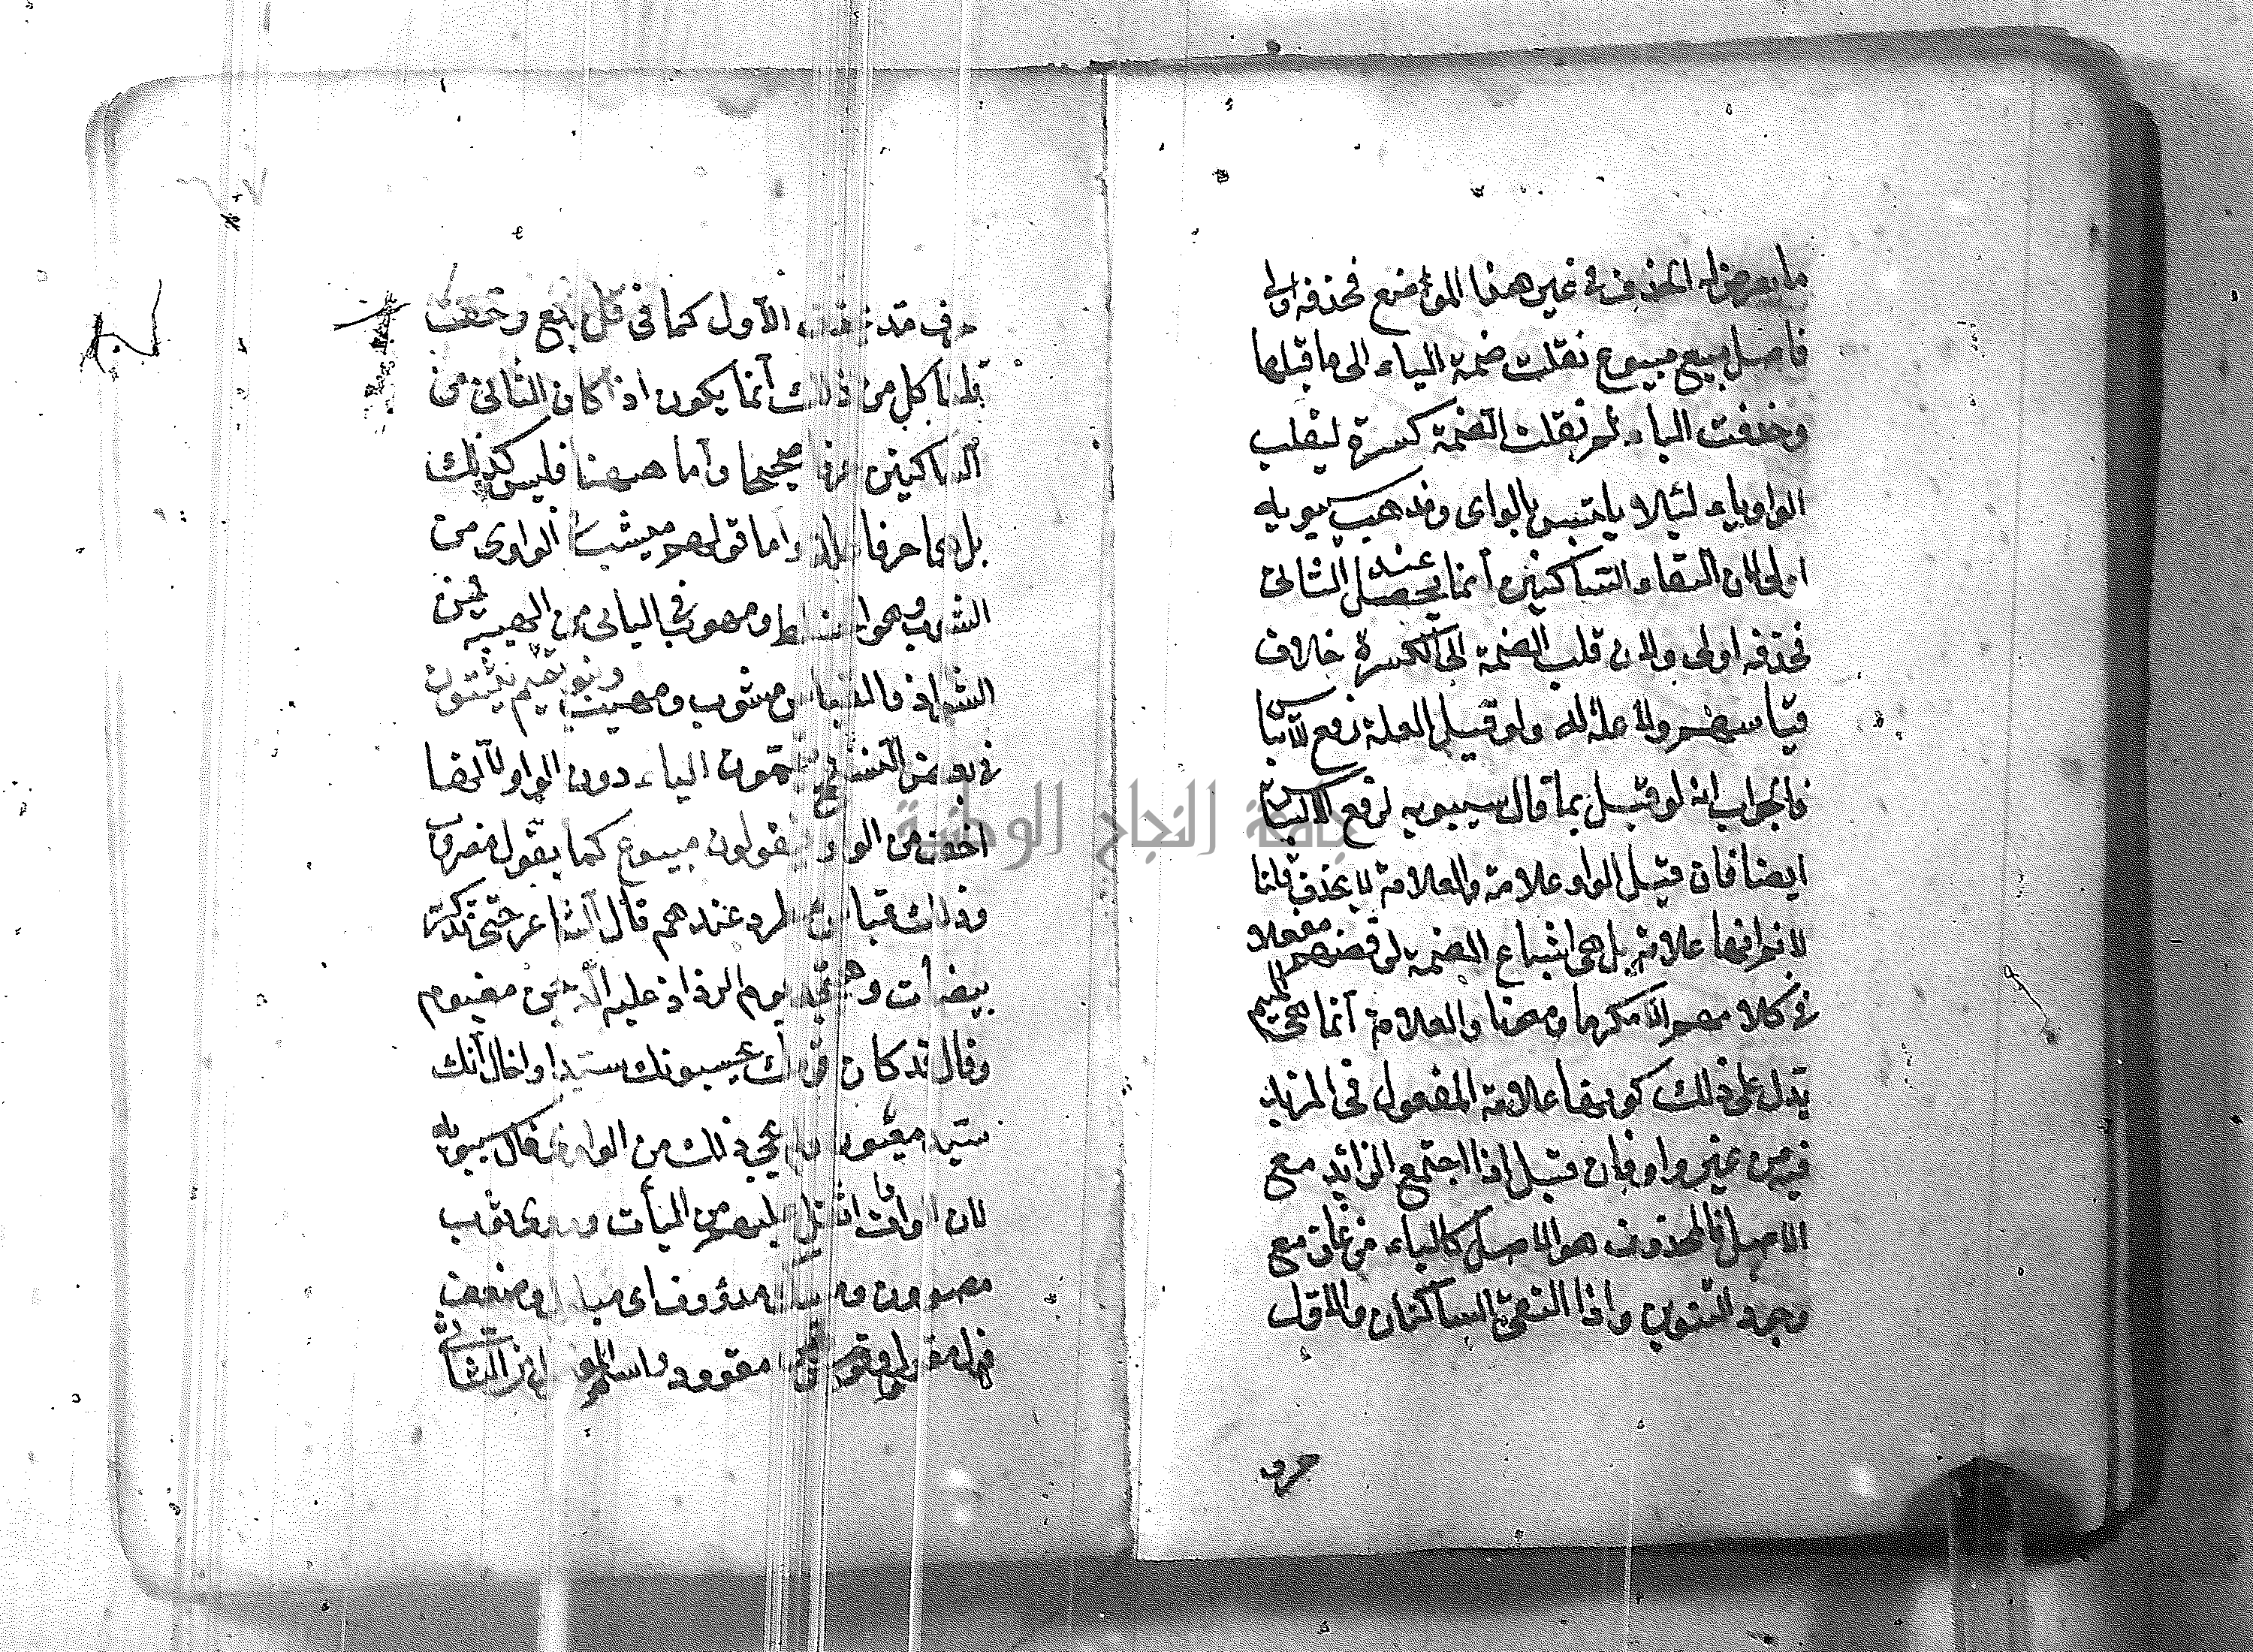 ما يعرض له الحذف في غير هذا الموضع فحذفه اولى
فاصل مبيع مبيوع نقلت ضمة الياء الى ما قبلها
وحذفت الياء ثم نقلت الضمة كسرة ليقلب
الواو ياء لئلا يلتبس بالواوى ومذهب سيبويه
اولى لان التقاء الساكنين انما يحصل عند الثانى
فحذفه اولى ولان قلب الضمة الى الكسرة خلاف
قياسهم ولا علة له ولو قيل العلة رفع الالتباس
فالجواب انه لو قيل بما قال سيبويه لرفع الالتباس
ايضا فان قيل الواو علامة والعلامة لا يحذف قلنا
لا نم انها علامة بل هى اشباع الضمة لرفضهم مفعلا
في كلامهم الا مكرما ومعونا والعلامة انما هى الميم
يدل على ذلك كونها علامة المفعول فى المزيد
فيه من غير واو فان قيل اذا اجتمع الزائد مع
الاصل فالمحذوف هو الاصل كالياء من غاز مع
وجود التنوين واذا التقى الساكنان والاول
حرف
حرف مد يحذف الاول كما فى قل وبع وخف
قلنا كل من ذلك انما يكون اذا كان الثانى من
الساكنين حرفا صحيحا واما ههنا فليس كذلك
بل هما حرفا علة واما قولهم مشيب فى الواوى من
الشوب وهو الخلط ومهوب فى اليائى من الهيبة فمن
الشواذ والقياس مشوب ومهيب وبنو تميم يثبتون
فى بعض النسخ يتمون الياء دون الواو لانها
اخف من الواو فيقولون مبيوع كما يقول مضروب
وذلك قياس مطرد عندهم قال الشاعر حتى تذكر
بيضات وهيجه يوم الرذاذ عليه الدجن مغيوم
وقال قد كان قومك يحسبونك سيدا واخال انك
سيد معيون ولم يجئ ذلك من الواو قال سيبويه
لان الواوات اثقل عليهم من اليأات وروى ثوب
مصوون ومسك مدووف اى مبلول وضعف
قول مقوول وفرس مقوود واسم المفعول من الثلاثى
جامعة النجاح الوطنية